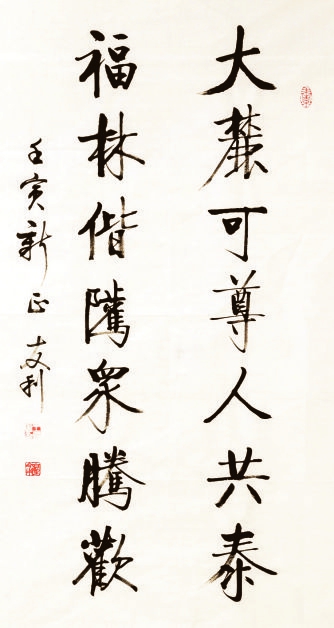 大麓可尊人共泰
福林偕隲眾騰歡
壬寅新正 友利